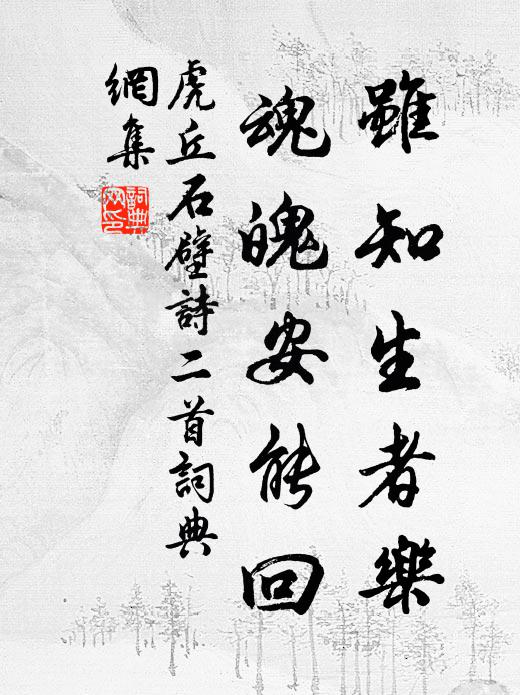 雖知生者樂
魂魄安能回
虎丘石壁詩二首詞典
網集
詞典
网印